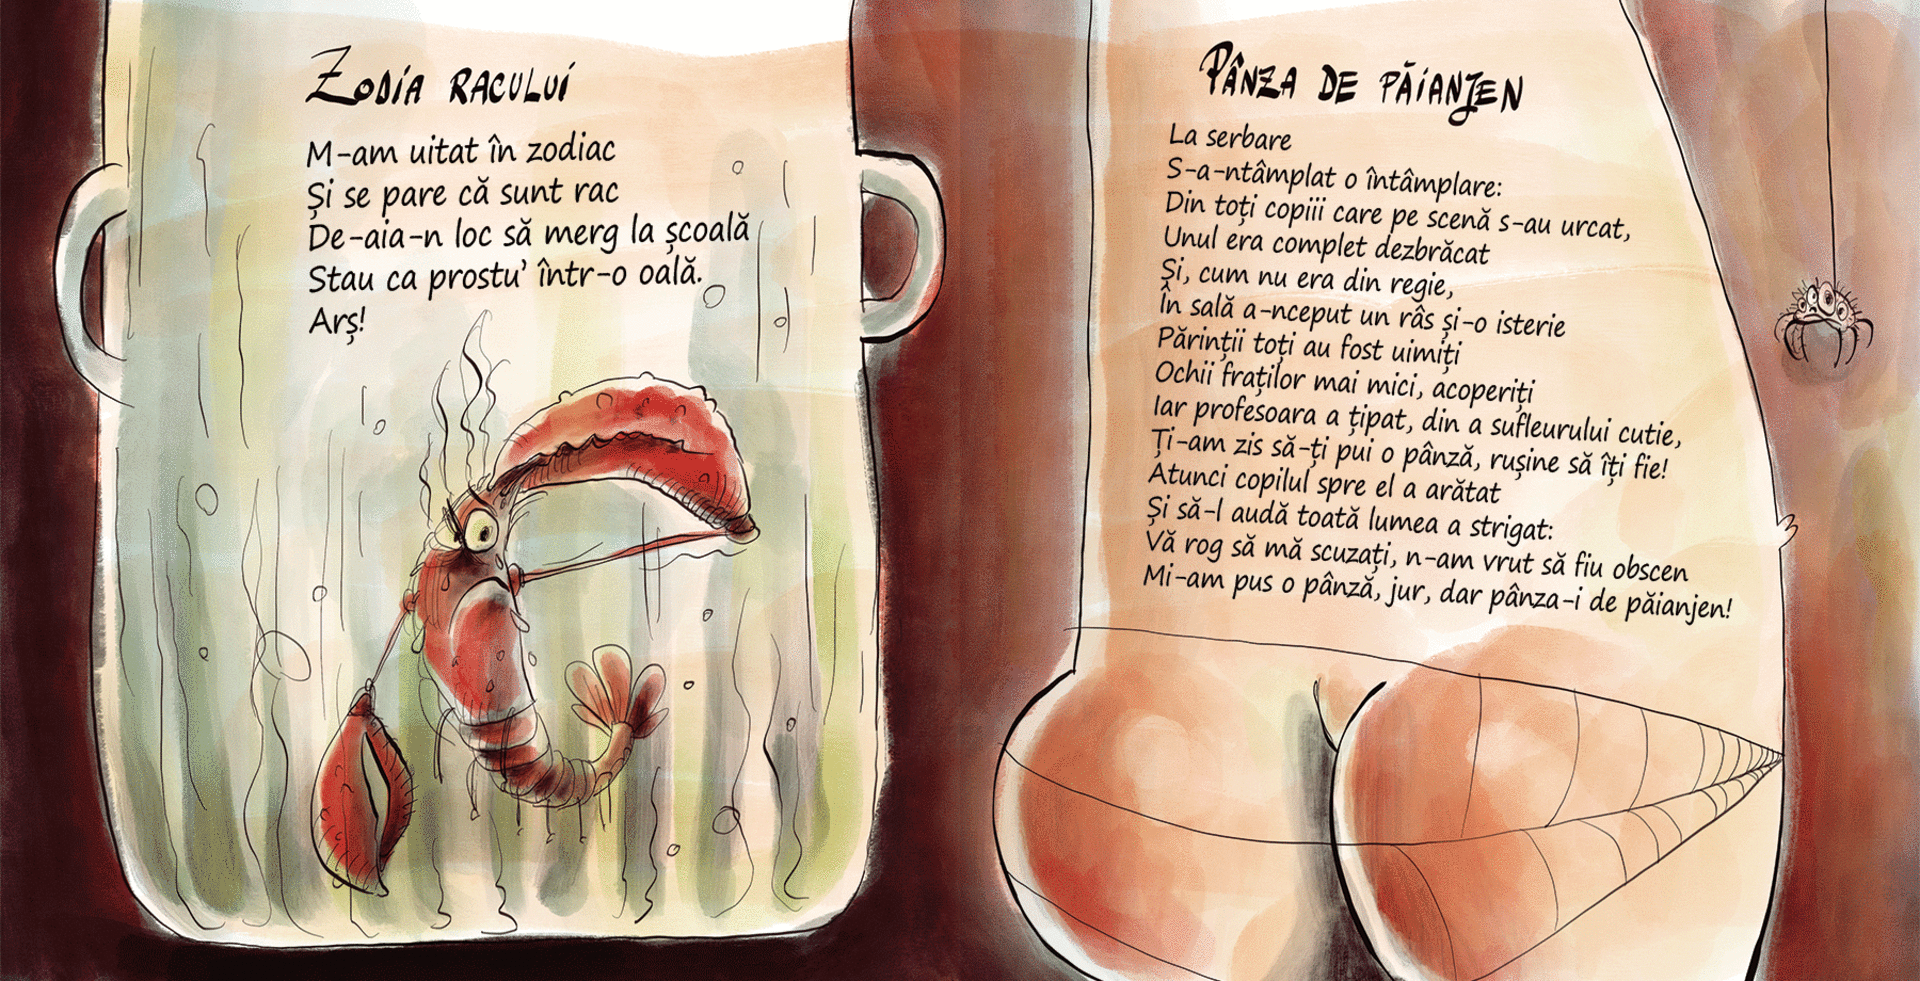 Zodia racului
M-am uitat în zodiac
Și se pare că sunt rac
De-aia-n loc să merg la școală
Stau ca prostu' într-o oală.
Arș!
Pânza de păianjen
La serbare
S-a-ntâmplat o întâmplare:
Din toți copiii care pe scenă s-au urcat,
Unul era complet dezbrăcat
Și, cum nu era din regie,
În sală a-nceput un râs și-o isterie
Părinții toți au fost uimiți
Ochii fraților mai mici, acoperiți
Iar profesoara a țipat, din a sufleurului cutie,
Ți-am zis să-ți pui o pânză, rușine să îți fie!
Atunci copilul spre el a arătat
Și să-l audă toată lumea a strigat:
Vă rog să mă scuzați, n-am vrut să fiu obscen
Mi-am pus o pânză, jur, dar pânza-i de păianjen!